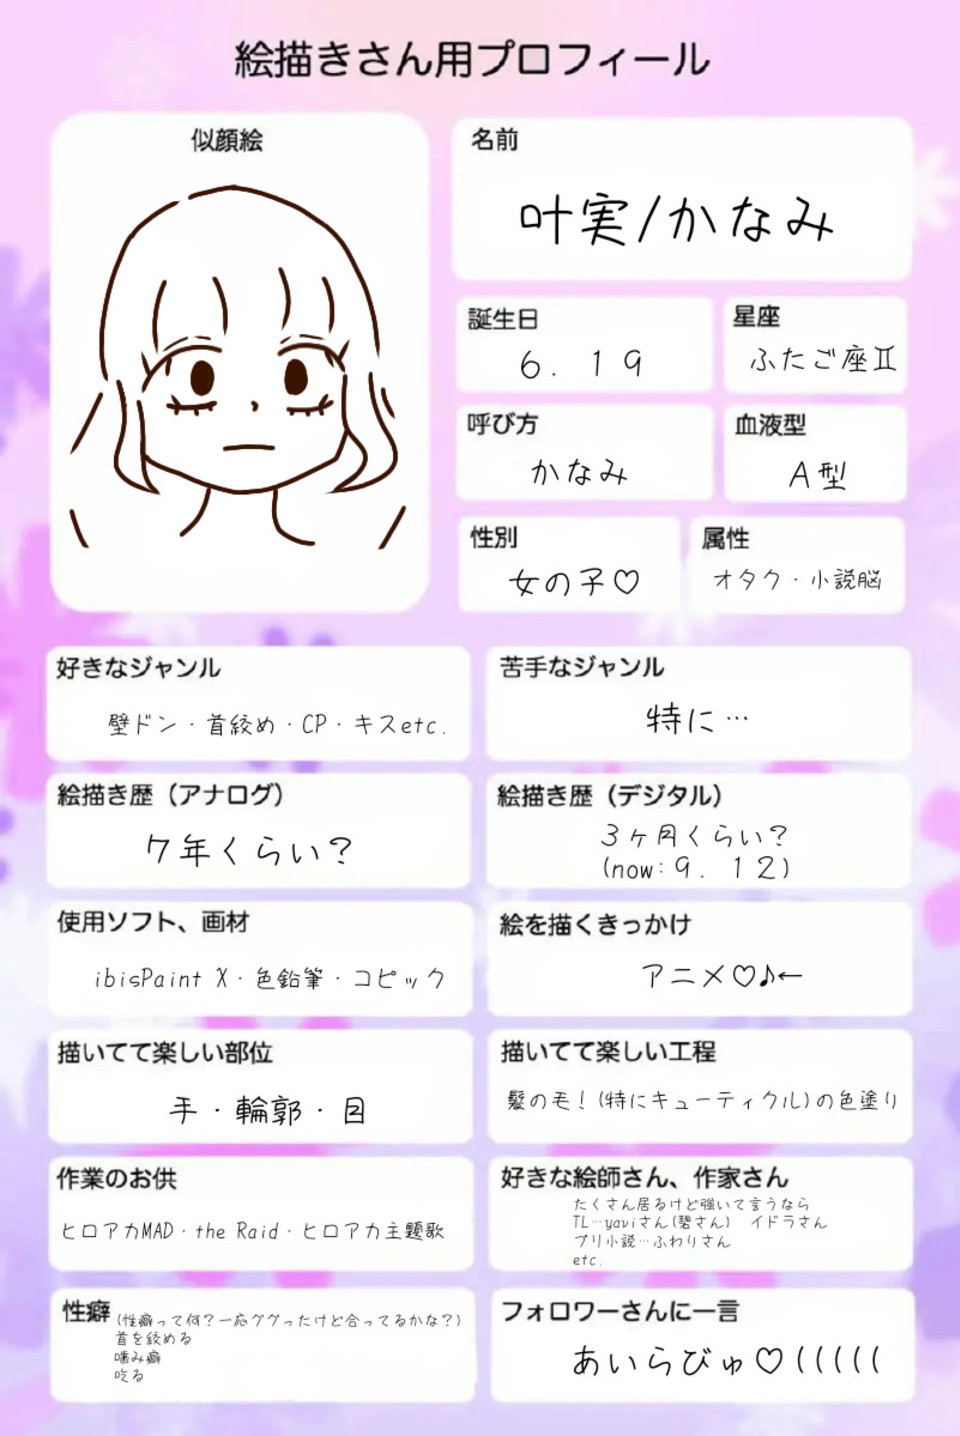 絵描きさん用プロフィール
似顔絵
名前
叶実/かなみ
誕生日
6. 19
星座
ふたご座♊
呼び方
かなみ
血液型
A型
性別
女の子♡
属性
オタク・小説脳
好きなジャンル
壁ドン・首絞め・CP・キスetc.
苦手なジャンル
特に…
絵描き歴（アナログ）
7年くらい？
絵描き歴（デジタル）
3ヶ月くらい？
(now:9. 12)
使用ソフト、画材
ibisPaint X・色鉛筆・コピック
絵を描くきっかけ
アニメ♡♪←
描いてて楽しい部位
手・輪郭・目
描いてて楽しい工程
髪の毛！(特にキューティクル)の色塗り
作業のお供
ヒロアカMAD・the Raid・ヒロアカ主題歌
好きな絵師さん、作家さん
たくさん居るけど強いて言うなら
TL…yaviさん(碧さん)　イドラさん
プリ小説…ふわりさん
etc.
性癖
(性癖って何？一応ググったけど合ってるかな？)
首を絞める
噛み癖
吃る
フォロワーさんに一言
あいらびゅ♡(((((